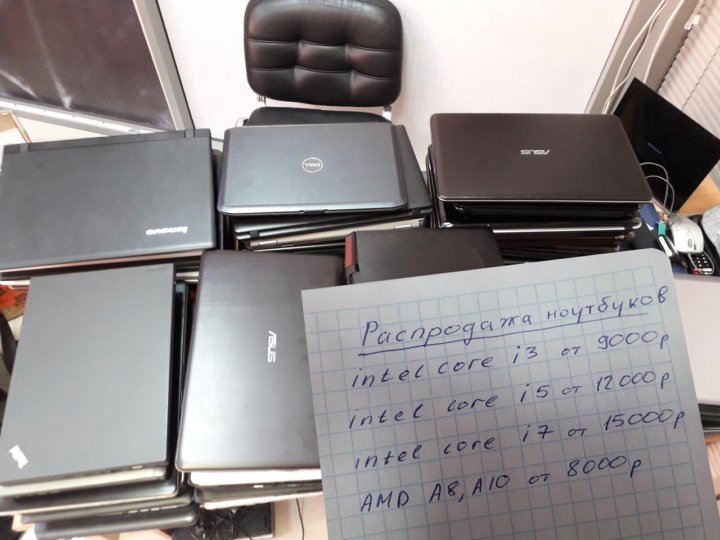 lenovo
DELL
ASUS
ASUS
ThinkPad
Распродажа ноутбуков
intel core i3 от 9000р
intel core i5 от 12000р
intel core i7 от 15000р
AMD A8, A10 от 8000р